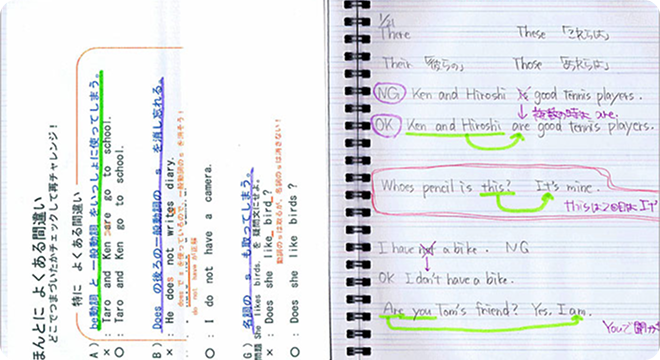 ほんとに よくある間違い
どこでつまづいたかチェックして再チャレンジ！
特に よくある間違い
A) be動詞 と 一般動詞 をいっしょに使ってしまう。
×： Taro and Ken are go to school.
○： Taro and Ken go to school.
B) Does の後ろの一般動詞の s を消し忘れる。
×： He does not writes diary.
do not have が正解
○： I do not have a camera.
G) 名詞の s も取ってしまう。
問題 She likes birds. を 疑問文にせよ。
×： Does she like bird ?
動詞の s は取るが、名詞の s は消さない！
○： Does she like birds ?
1/21
There These 「これらは」
Their 「彼らの」 Those 「あれらは」
NG Ken and Hiroshi is good tennis players.
複数の時は are.
OK Ken and Hiroshi are good tennis players.
Whoes pencil is this? It's mine.
thisは2回目は IT
I have not a bike. NG
OK I don't have a bike.
Are you Tom's friend? Yes, I am.
Youで聞か